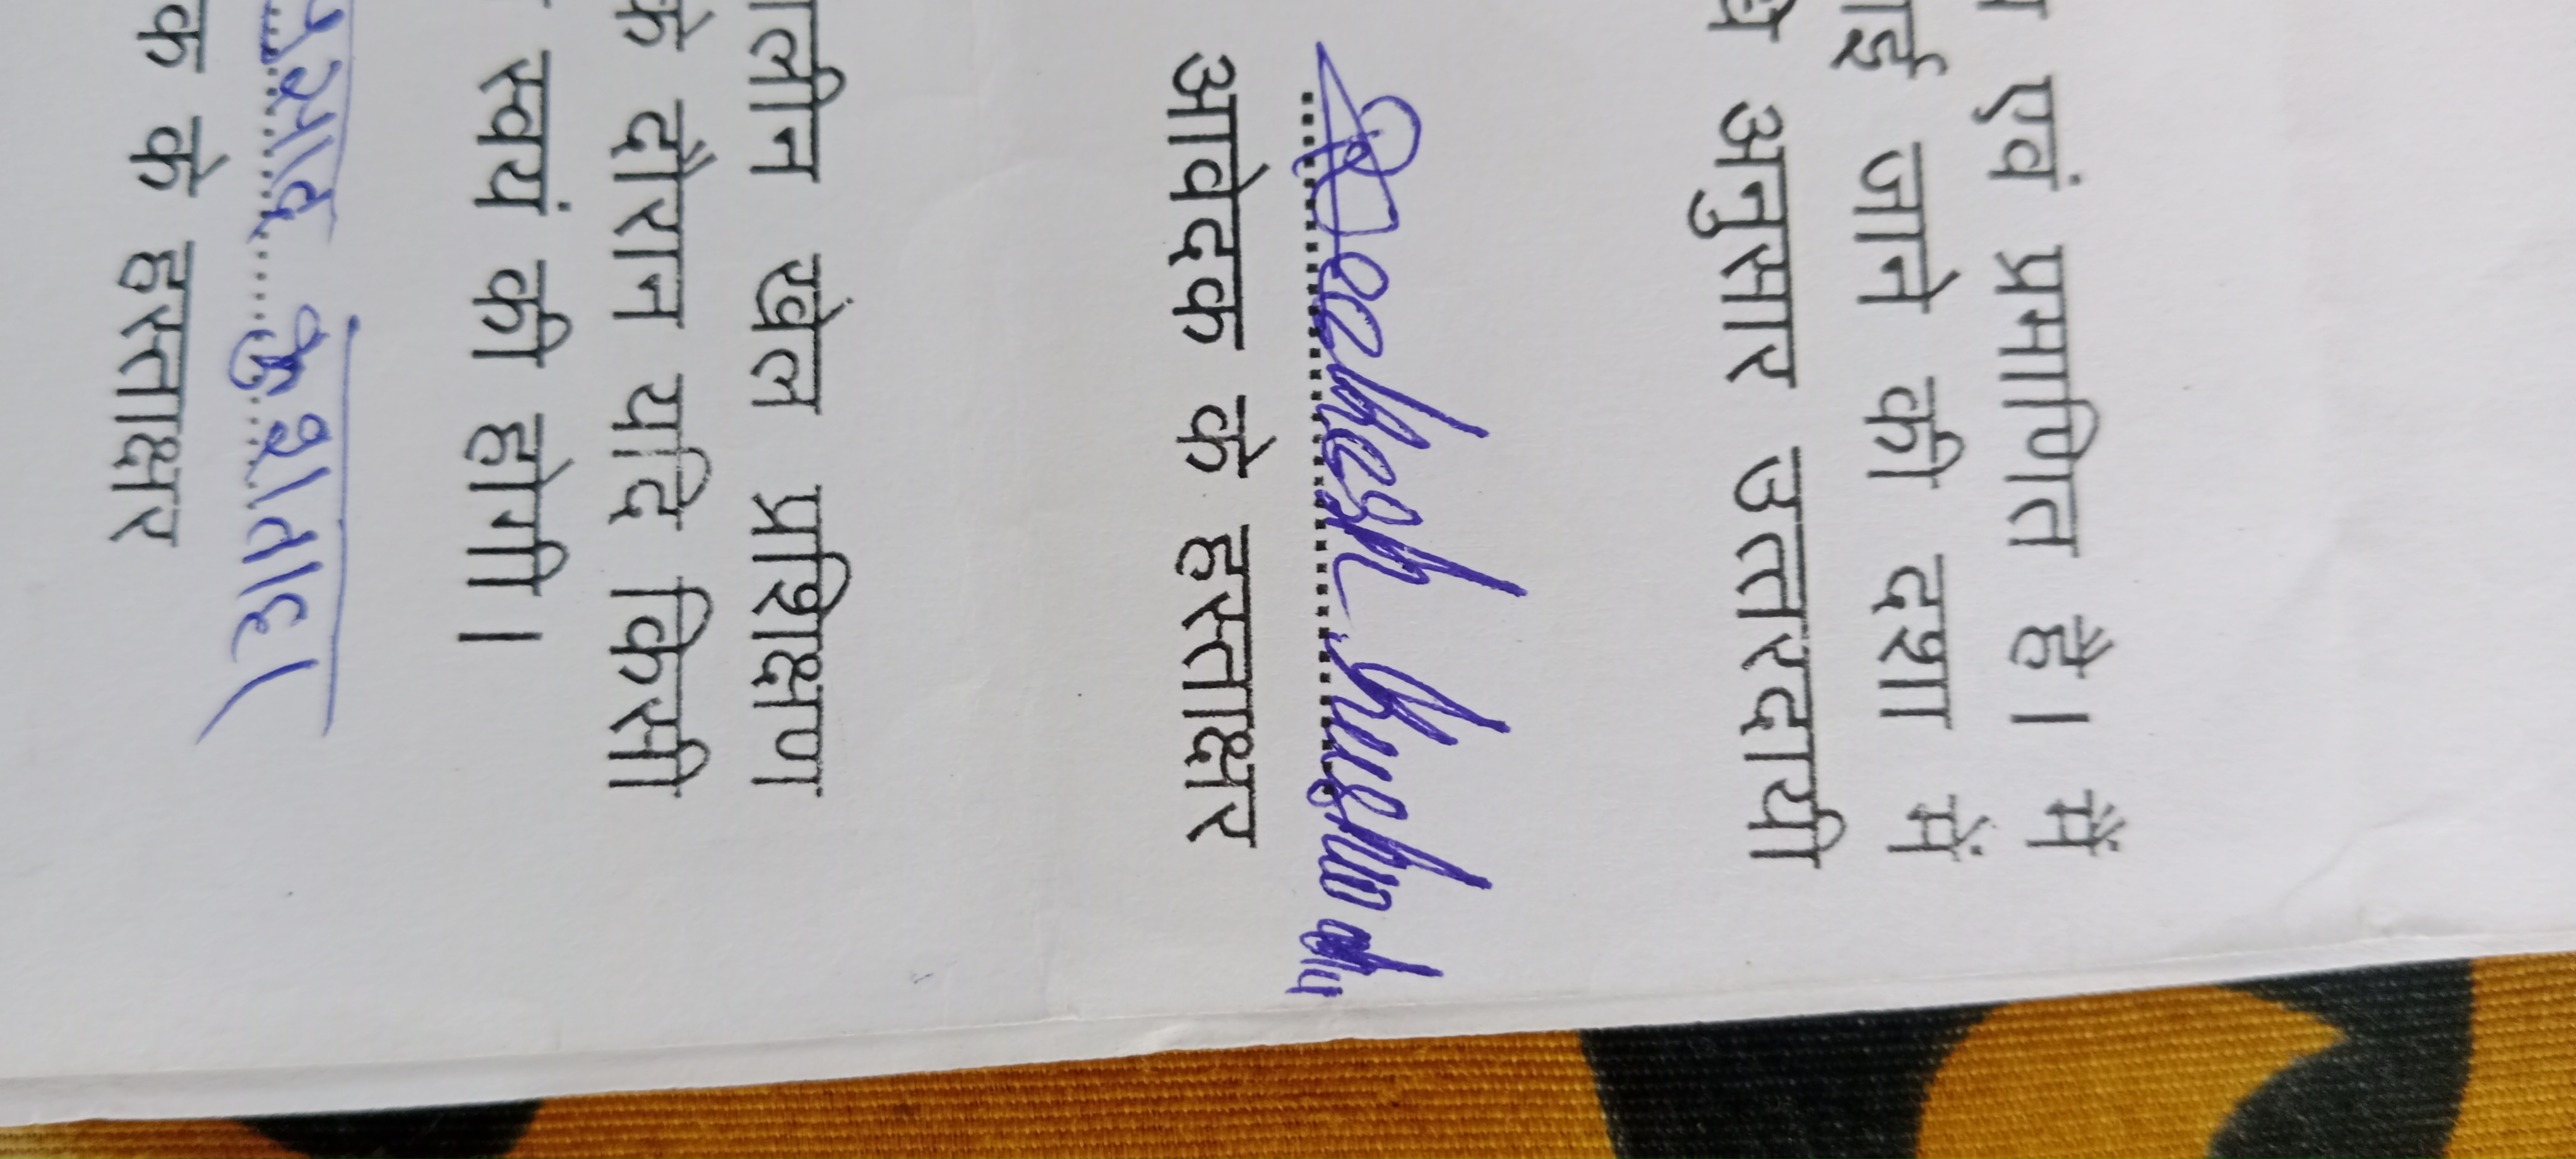 एवं प्रमाणित है। मैं
जाने की दशा में
अनुसार उत्तरदायी
Deekesh Kushwah
आवेदक के हस्ताक्षर
खेल प्रशिक्षण
के दौरान यदि किसी
स्वयं की होगी।
प्रसाद कुशवाह
के हस्ताक्षर